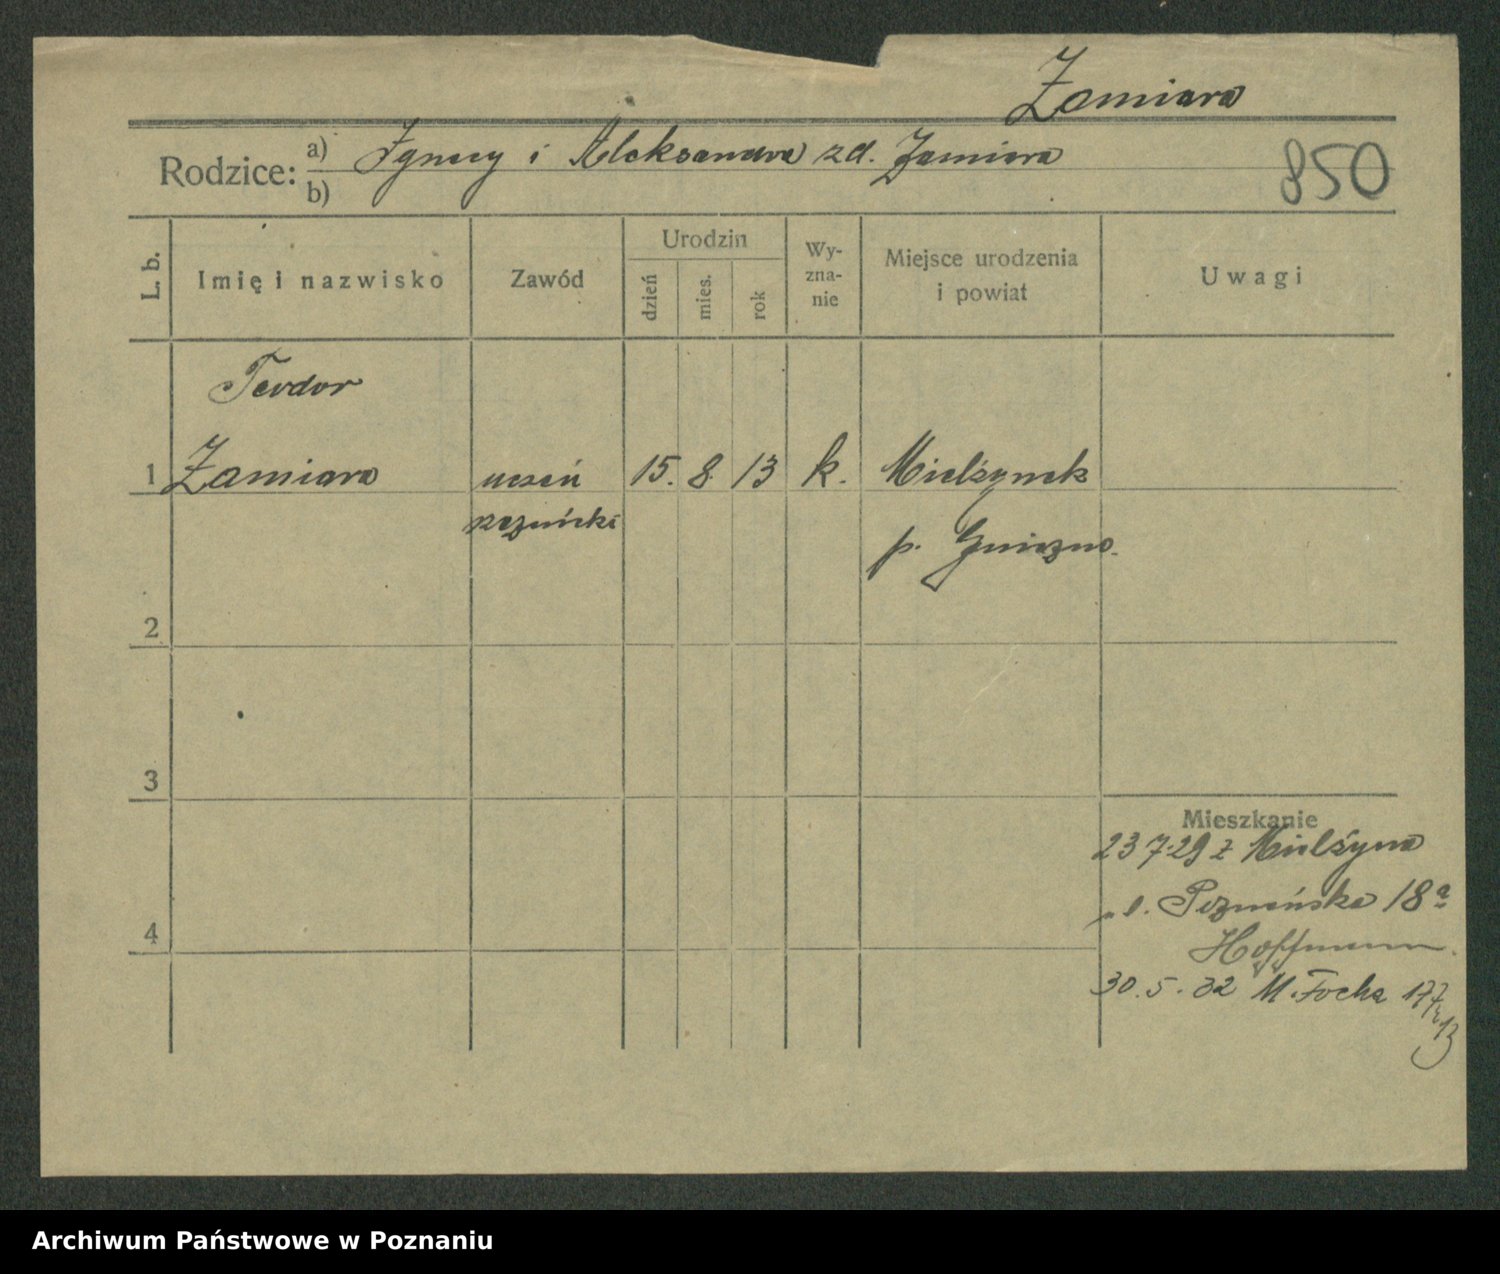 Żamiara
Rodzice: a) Ignacy i Aleksandra zd. Żamiara
b)
850
L. b.
Imię i nazwisko
Zawód
Urodzin
dzień
mies.
rok
Wy-
zna-
nie
Miejsce urodzenia
i powiat
Uwagi
Teodor
1 Żamiara uczeń 15. 8. 13 k. Mielżynek
rzeźnicki
p. Gniezno.
2
3
Mieszkanie
23 7.29 z Mielżyna
ul. Poznańska 18a
4
Hoffmann
30. 5. 32 M. Focha 177
Archiwum Państwowe w Poznaniu